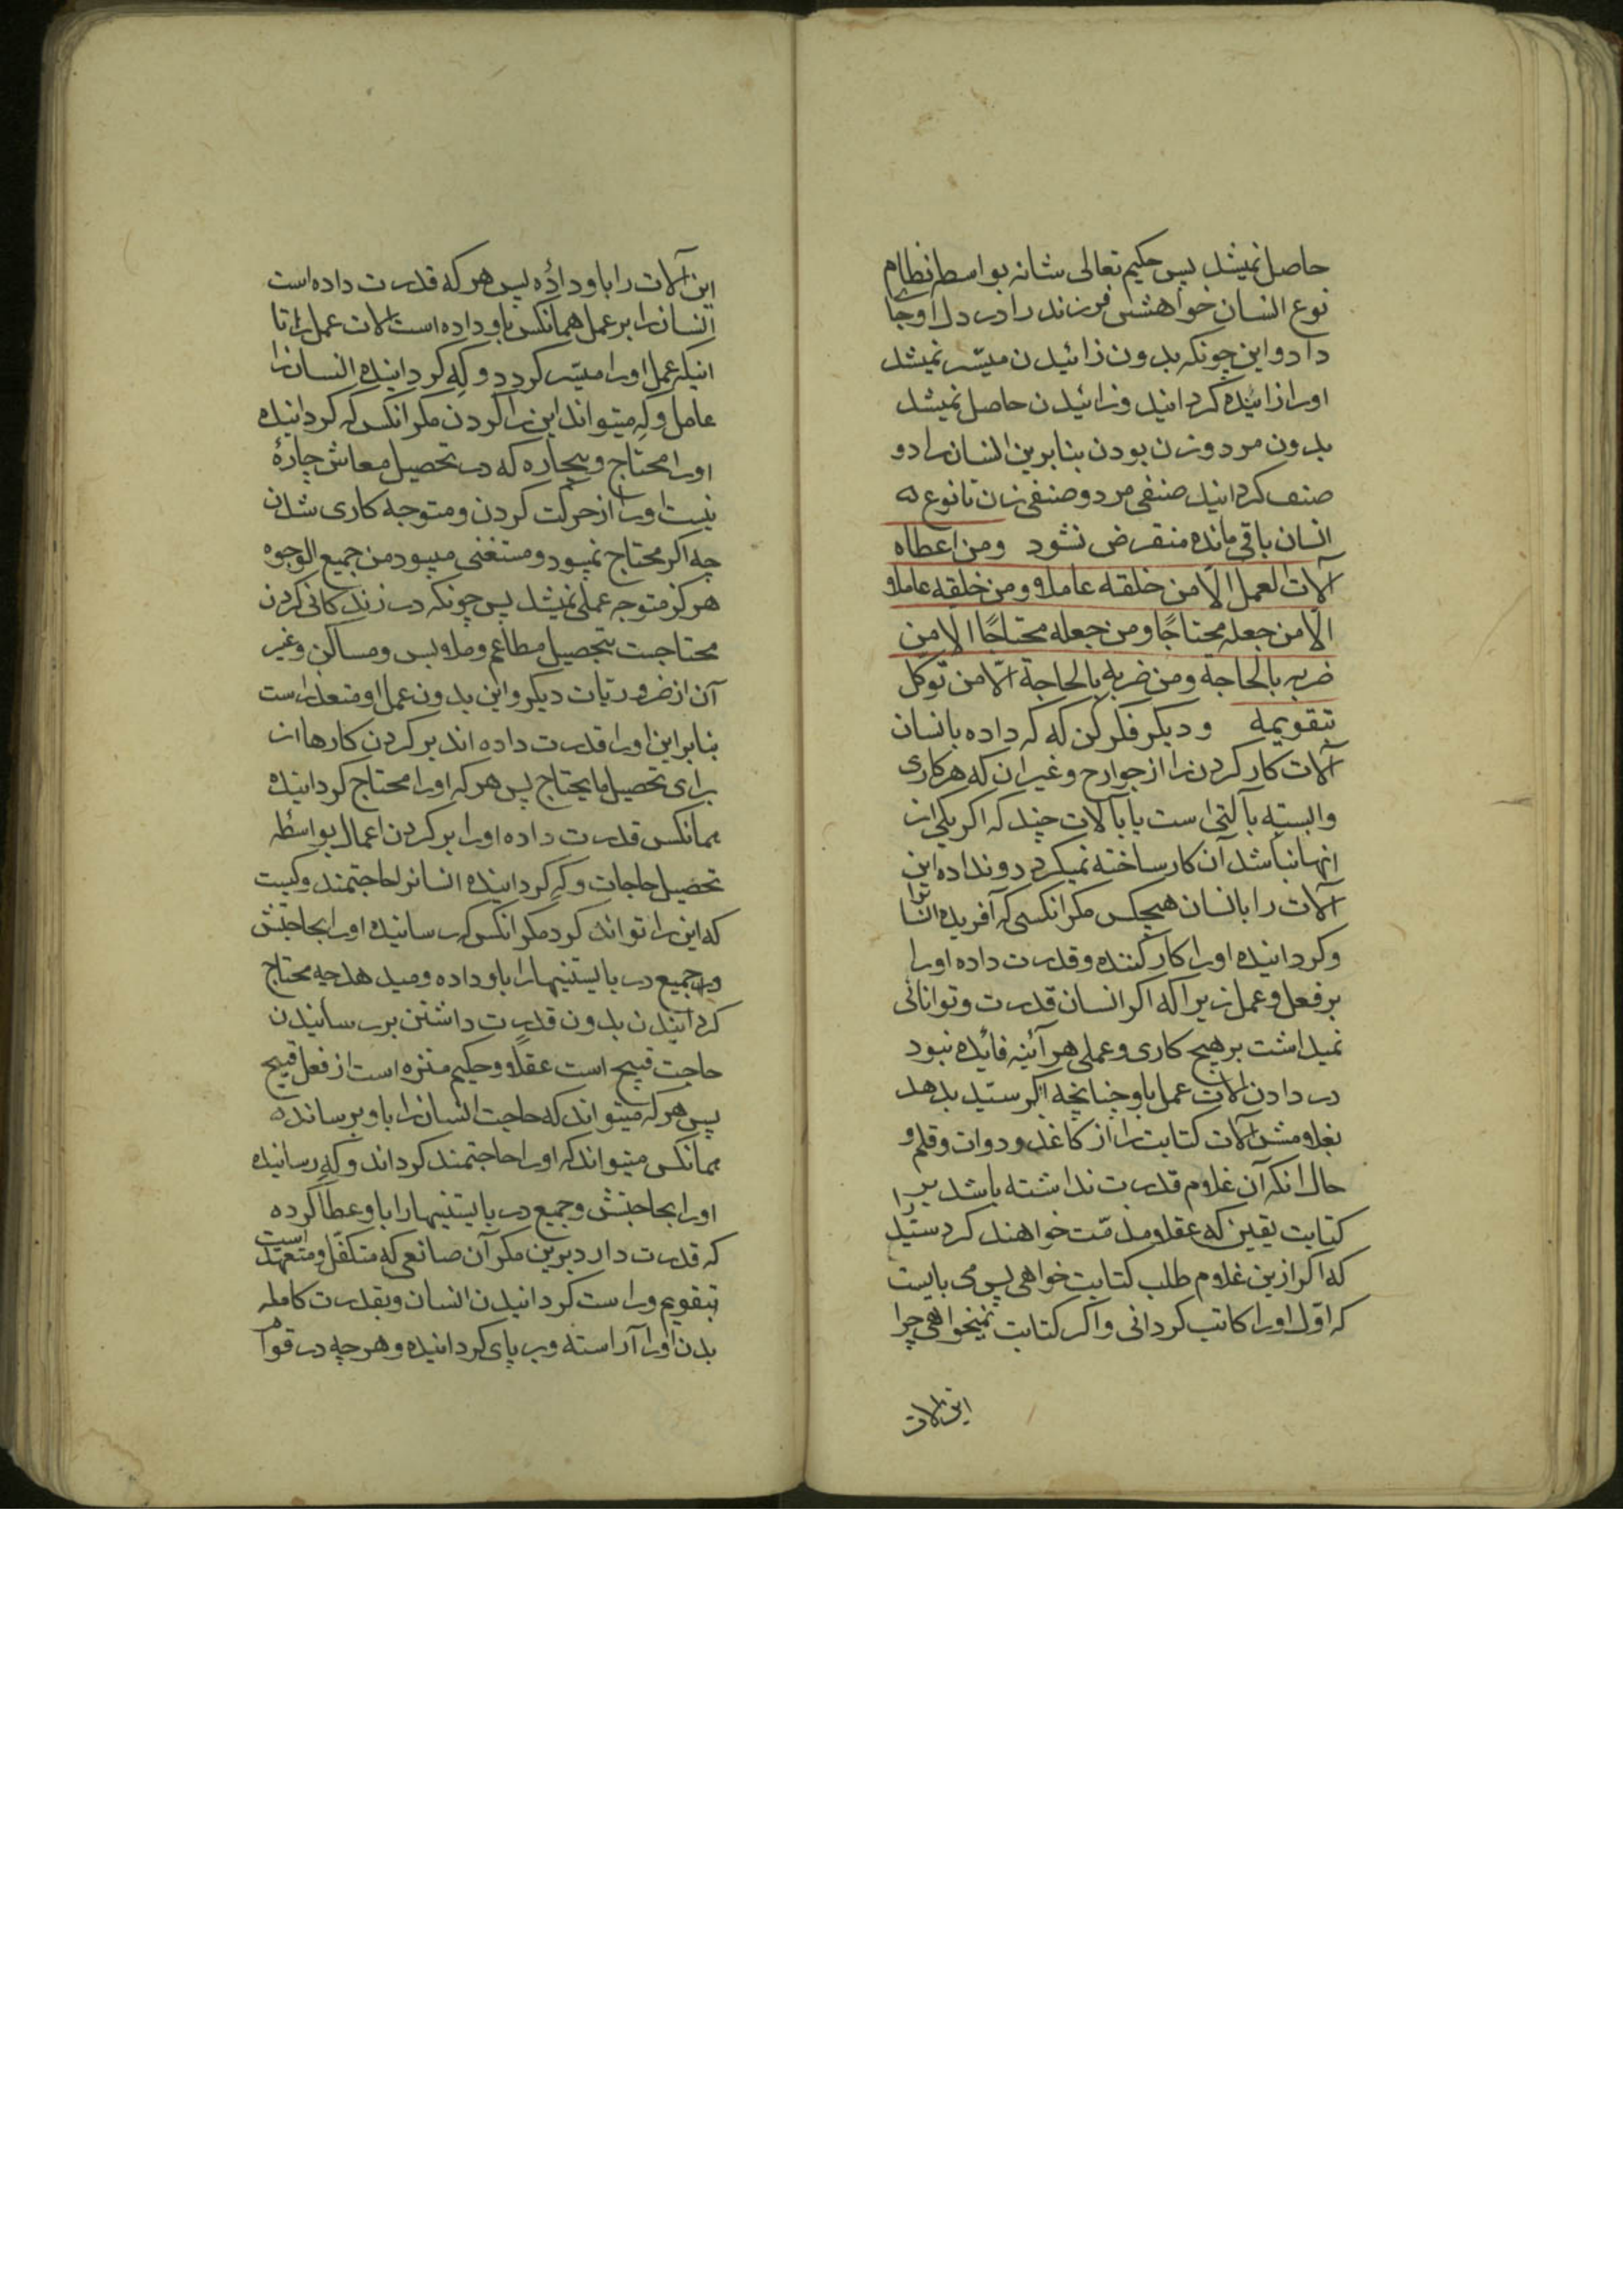 حاصل نمیشد پس حکیم تعالی شانه بواسطه نظام
نوع انسان خواهشی فرزند را در دل او جای
داد و این چونکه بدون زائیدن میسّر نمیشد
او را زائیده کردانید و زائیدن حاصل نمیشد
بدون مرد و زن بودن بنابرین انسان را دو
صنف کردانید صنفی مرد و صنفی زن تا نوع
انسان باقی مانده منقرض نشود ومن اعطاه
آلات العمل الّا من خلقه عاملا ومن خلقه عاملا
الّا من جعله محتاجًا ومن جعله محتاجًا الا من
ضربه بالحاجة ومن ضربه بالحاجة الّا من توکل
بتقویمه و دیکر فکر کن که که داده بانسان
آلات کار کردن را از جوارح و غیر ان که هر کاری
وابسته بآلتی است یا بآلات چند که اکر یکی از
انها نباشد آن کار ساخته نمیکردد و نداده این
آلات را بانسان هیچکس مکر انکسی که آفریده انسانرا
و کردانیده او را کار کننده و قدرت داده او را
بر فعل و عمل زیرا که اکر انسان قدرت و توانائی
نمیداشت بر هیچ کاری و عملی هر آئینه فائده نبود
در دادن آلات عمل باو چنانچه اکر سیّد بدهد
بغلامش آلات کتابت را از کاغذ و دوات و قلم و
حال انکه آن غلام قدرت نداشته باشد بر
کتابت یقین که عقلا مذمّت خواهند کرد سیّد را
که اکر ازین غلام طلب کتابت خواهی پس می بایست
که اوّل او را کاتب کردانی و اکر کتابت نمیخواهی چرا
این آلات
این آلات را باو داده پس هر که قدرت داده است
انسان را بر عمل همانکس باو داده است آلات عمل را تا
انیکه عمل او را میسّر کردد و که کردانیده انسان را
عامل و که میتواند این را کردن مکر انکس که کردانیده
او را محتاج و بیچاره که در تحصیل معاش چارۀ
نیست او را از حرکت کردن و متوجه کاری شدن
چه اکر محتاج نمیبود و مستغنی میبود من جمیع الوجوه
هرکز متوجه عملی نمیشد پس چونکه در زندکانی کردن
محتاجست بتحصیل مطاعم و ملابس و مساکن و غیر
آن از ضروریات دیکر و این بدون عمل او متعذّر است
بنابر این او را قدرت داده اند بر کردن کارها از
برای تحصیل ما یحتاج پس هر که او را محتاج کردانیده
همانکس قدرت داده او را بر کردن اعمال بواسطه
تحصیل حاجات و که کردانیده انسانرا حاجتمند و کیست
که این را تواند کرد مکر انکس که رسانیده او را بحاجتش
و جمیع در بایستنیها را باو داده و میدهد چه محتاج
کردانیدن بدون قدرت داشتن بر رسانیدن
حاجت قبیح است عقلًا و حکیم منزه است از فعل قبیح
پس هر که میتواند که حاجت انسان را باو برساند
همانکس میتواند که او را حاجتمند کرداند و که رسانیده
او را بحاجتش و جمیع در بایستنیها را باو عطا کرده است
که قدرت دارد برین مکر آن صانعی که متکفّل و متعهد
بتقویم و راست کردانیدن انسان و بقدرت کامله
بدن او را آراسته و بر پای کردانیده و هر چه در قوام